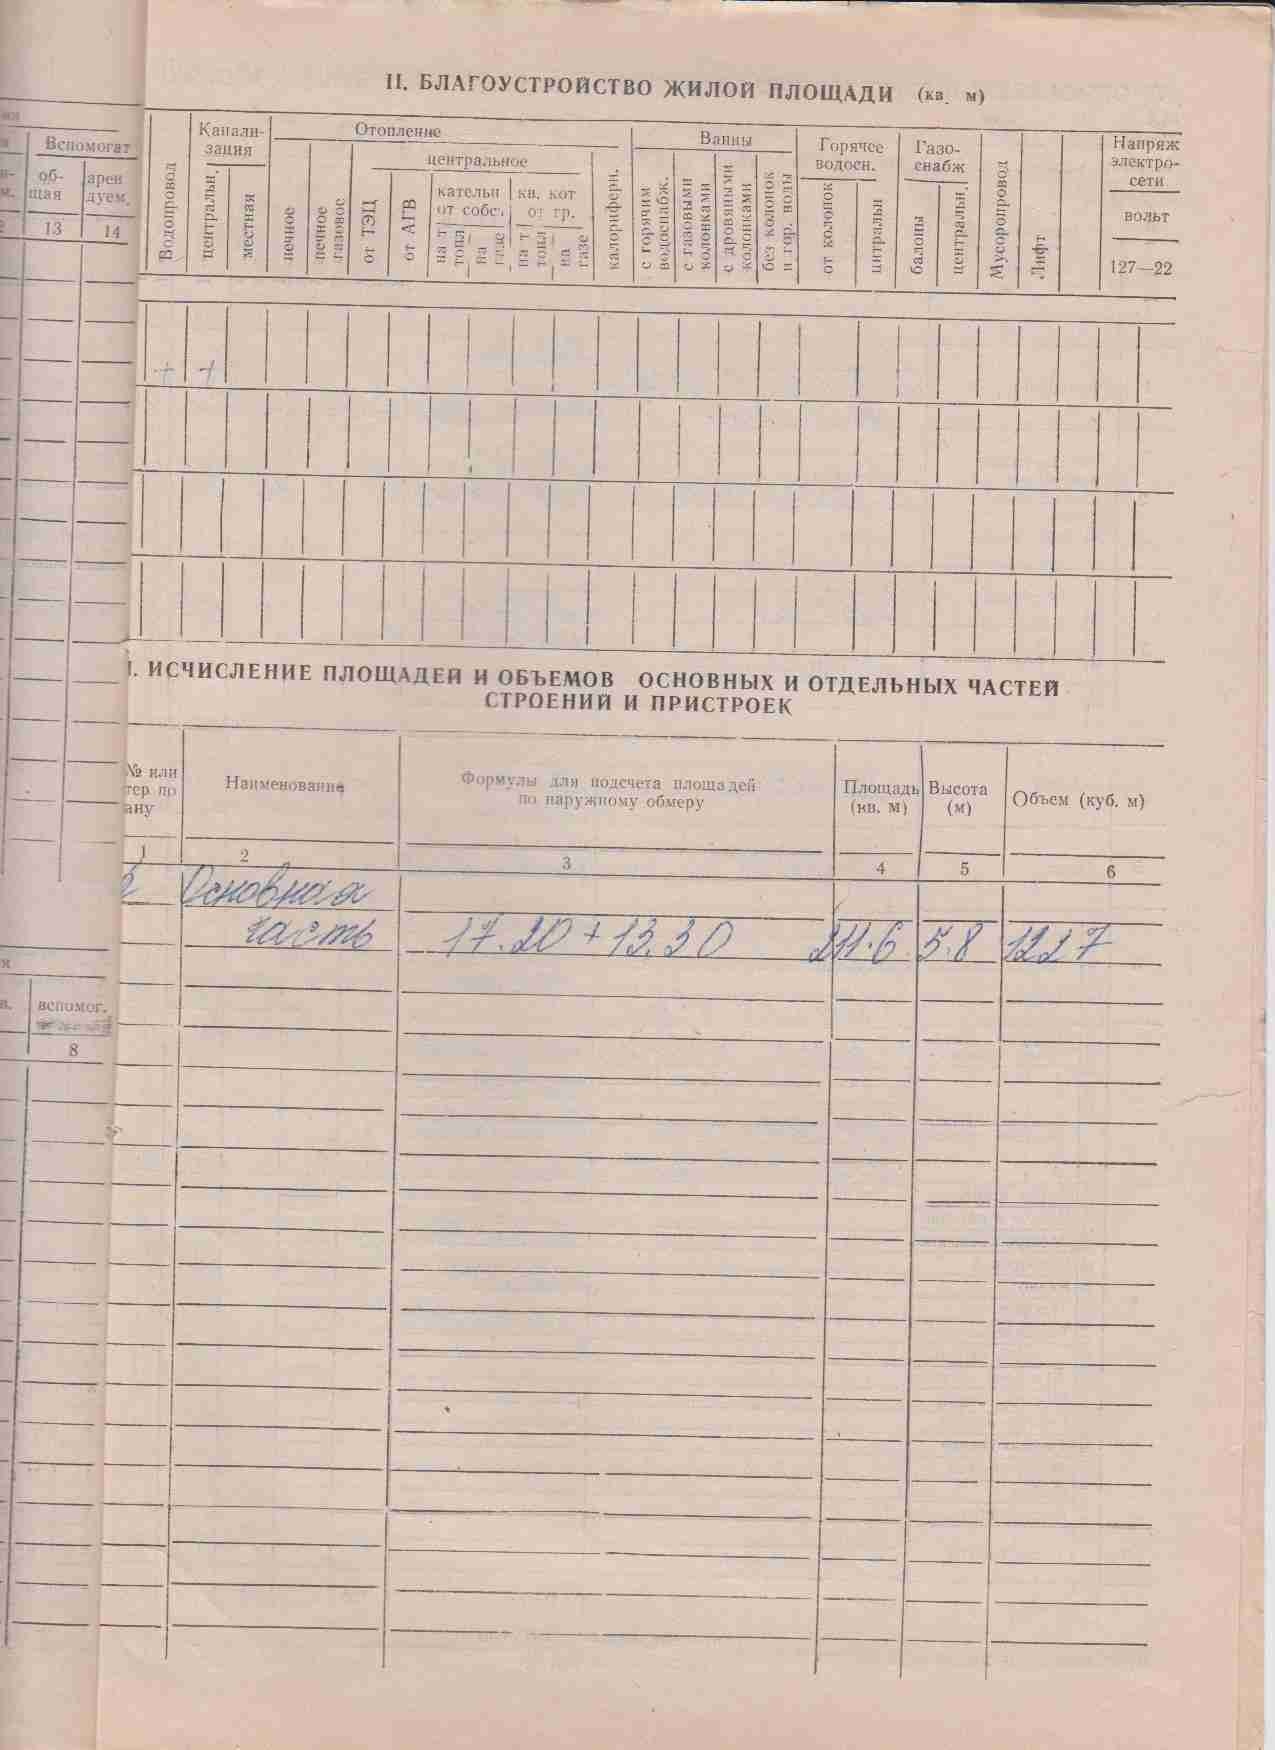 II. БЛАГОУСТРОЙСТВО ЖИЛОЙ ПЛОЩАДИ (кв. м)
Вспомогат
об-
щая
арен
дуем.
13 14
Водопровод
Канали-
зация
центральн.
местная
Отопление
печное
печное
газовое
центральное
от ТЭЦ
от АГВ
кательн
от собст.
на т
топл
на
газе
кв. кот
от гр.
на т
топл
на
газе
калориферн.
Ванны
с горячим
водоснабж.
с газовыми
колонками
с дровяными
колонками
без колонок
и гор. воды
Горячее
водосн.
от колонок
цитральн
Газо-
снабж
балоны
центральн.
Мусоропровод
Лифт
Напряж
электро-
сети
вольт
127—22
+ +
I. ИСЧИСЛЕНИЕ ПЛОЩАДЕЙ И ОБЪЕМОВ ОСНОВНЫХ И ОТДЕЛЬНЫХ ЧАСТЕЙ
СТРОЕНИЙ И ПРИСТРОЕК
№ или
тер по
ану
Наименование
Формулы для подсчета площадей
по наружному обмеру
Площадь
(кв. м)
Высота
(м)
Объем (куб. м)
1 2 3 4 5 6
Основная
часть 17.20 + 13.30 211.6 5.8 1227
в. вспомог.
8